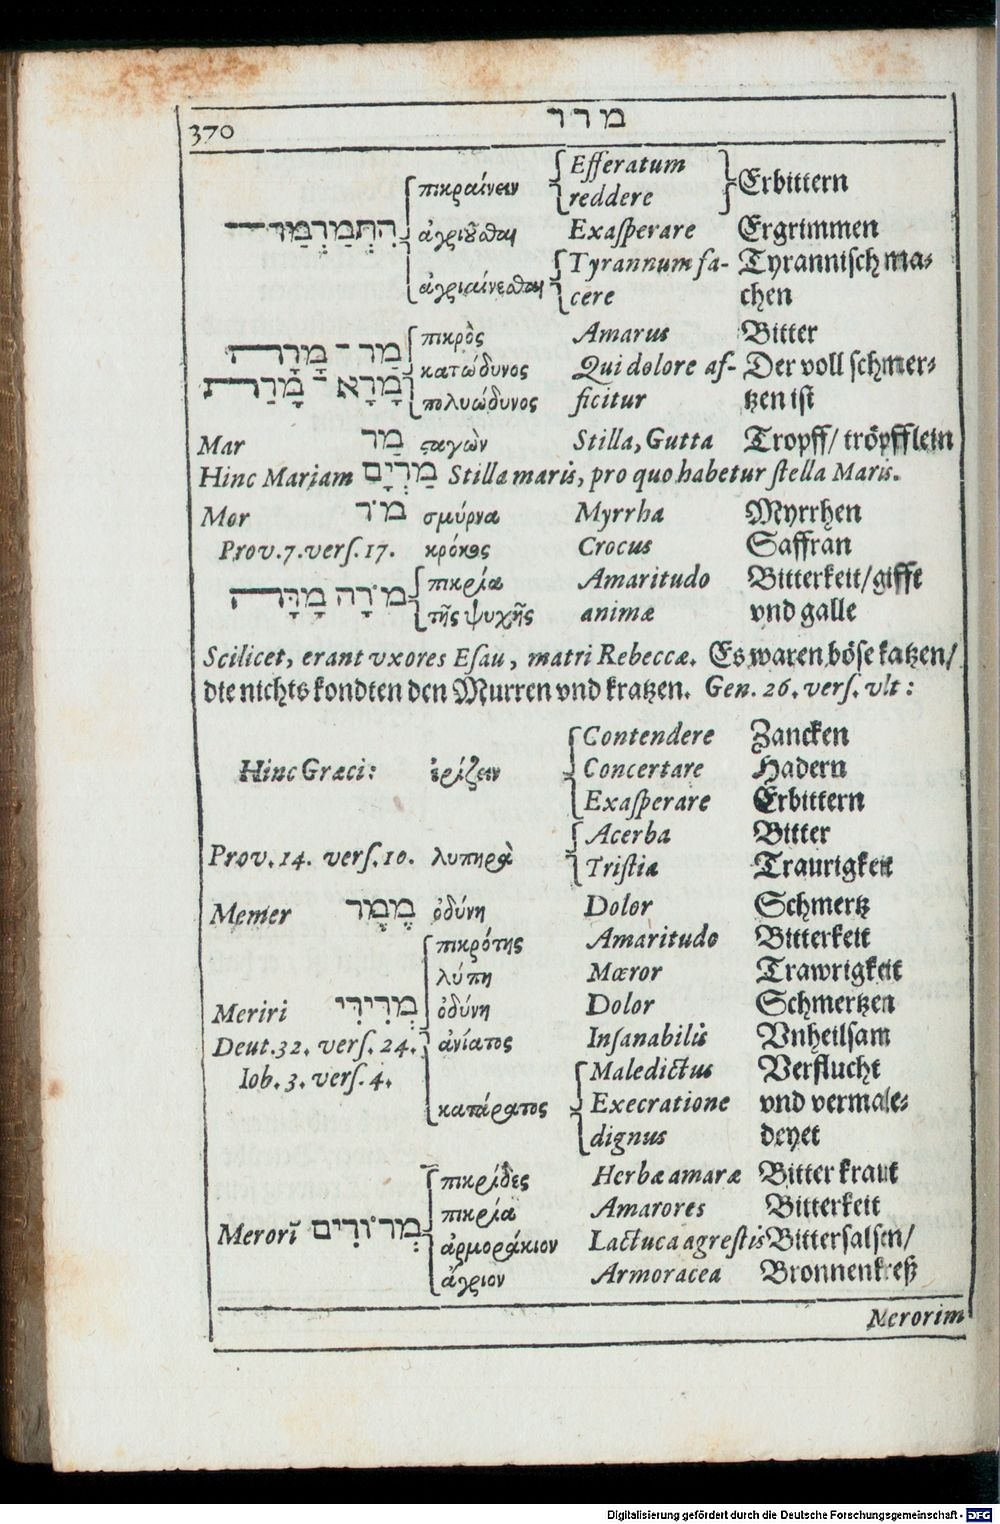 370 מרר
πικραίνειν Efferatum Erbittern
reddere
הִתְמַרְמַר ἀγριοῦσθαι Exaſperare Ergrimmen
ἀγριαίνεσθαι Tyrannum fa- Tyranniſch ma⸗
cere chen
מַר ־ מָרָה πικρὸς Amarus Bitter
κατώδυνος Qui dolore af- Der voll ſchmer⸗
מָרָא ־ מָרַת πολυώδυνος ficitur tzen iſt
Mar מַר ϛαγὼν Stilla, Gutta Tropff/ tröpfflein
Hinc Mariam מַרְיָם Stilla maris, pro quo habetur ſtella Maris.
Mor מֹר σμύρνα Myrrha Myrrhen
Prov. 7. verſ. 17. κρόκος Crocus Saffran
מֹרָה מָרָּה πικρία Amaritudo Bitterkeit/gifft
τῆς ψυχῆς animæ vnd galle
Scilicet, erant vxores Eſau, matri Rebeccæ. Es waren böſe katzen/
die nichts kondten den Murren vnd kratzen. Gen. 26. verſ. vlt:
Contendere Zancken
Hinc Græci: ἐρίζειν Concertare Hadern
Exaſperare Erbittern
Acerba Bitter
Prov. 14. verſ. 10. λυπηρὰ Triſtia Traurigkeit
Memer מֶמֶר ὀδύνη Dolor Schmertz
πικρότης Amaritudo Bitterkeit
λύπη Mæror Trawrigkeit
Meriri מְרִירִי ὀδύνη Dolor Schmertzen
Deut. 32. verſ. 24. ἀνίατος Inſanabilis Vnheilſam
Iob. 3. verſ. 4. Maledictus Verflucht
κατάρατος Execratione vnd vermale⸗
dignus deyet
πικρίδες Herbæ amaræ Bitter kraut
πικρία Amarores Bitterkeit
Merorĩ מְרוֹרִים ἀρμοράκιον Lactuca agreſtis Bitterſalſen/
ἄγριον Armoracea Bronnenkreß
Merorim
Digitalisierung gefördert durch die Deutsche Forschungsgemeinschaft - DFG